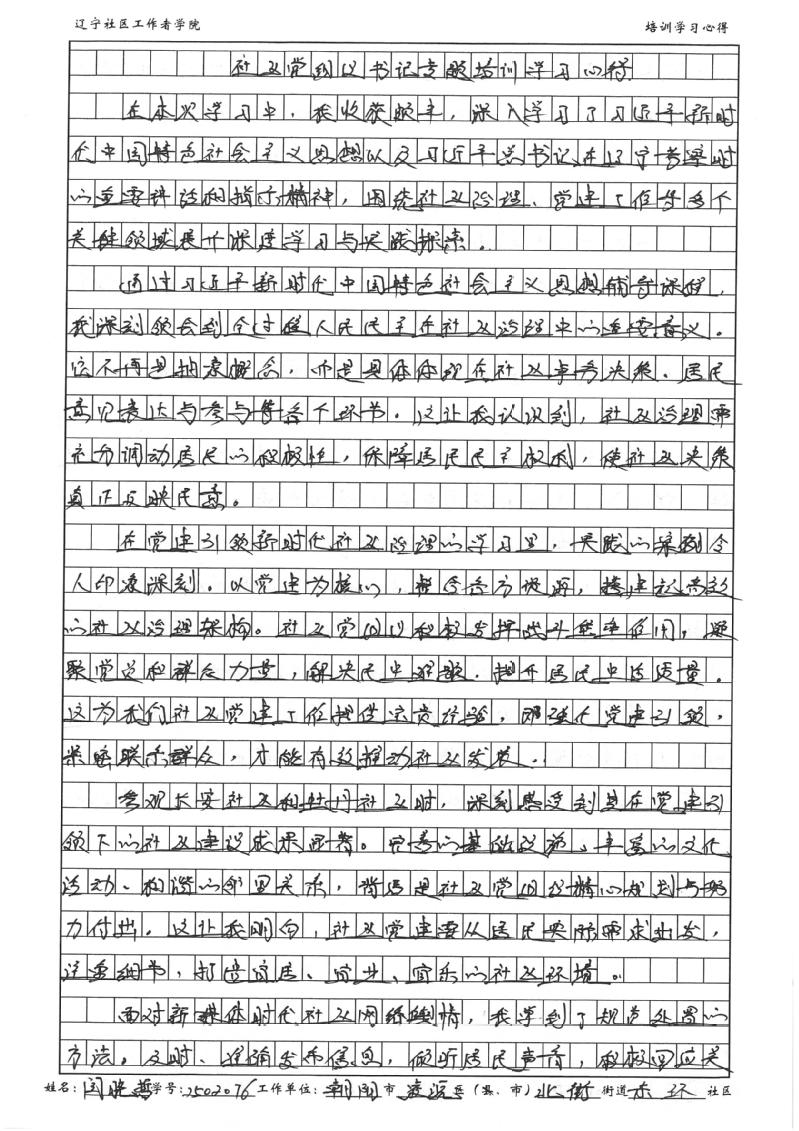 辽宁社区工作者学院 培训学习心得
社区党组织书记专题培训学习心得
在本次学习中,我收获颇丰,深入学习了习近平新时
代中国特色社会主义思想以及习近平总书记在辽宁考察时
的重要讲话和指示精神,围绕社区治理、党建工作等多个
关键领域展开深度学习与实践探索。
通过习近平新时代中国特色社会主义思想辅导课程,
我深刻领会到全过程人民民主在社区治理中的重要意义。
它不再是抽象概念,而是具体体现在社区事务决策、居民
意见表达与参与等各个环节。这让我认识到,社区治理需
充分调动居民的积极性,保障居民民主权利,使社区决策
真正反映民意。
在党建引领新时代社区治理的学习里,实践的案例令
人印象深刻。以党建为核心,整合各方资源,搭建起高效
的社区治理架构。社区党组织积极发挥战斗堡垒作用,凝
聚党员和群众力量,解决民生难题,提升居民生活质量。
这为我们社区党建工作提供宝贵经验,即强化党建引领,
紧密联系群众,才能有效推动社区发展。
参观长安社区和牡丹社区时,深刻感受到其在党建引
领下的社区建设成果显著。完善的基础设施、丰富的文化
活动、和谐的邻里关系,背后是社区党组织精心规划与努
力付出。这让我明白,社区党建要从居民实际需求出发,
注重细节,打造宜居、宜业、宜乐的社区环境。
面对新媒体时代社区网络舆情,我学到了规范处置的
方法。及时、准确发布信息,倾听居民声音,积极回应关
姓名:闫晓哲 学号:2502076 工作单位:朝阳市凌源区(县、市)北街街道东环社区